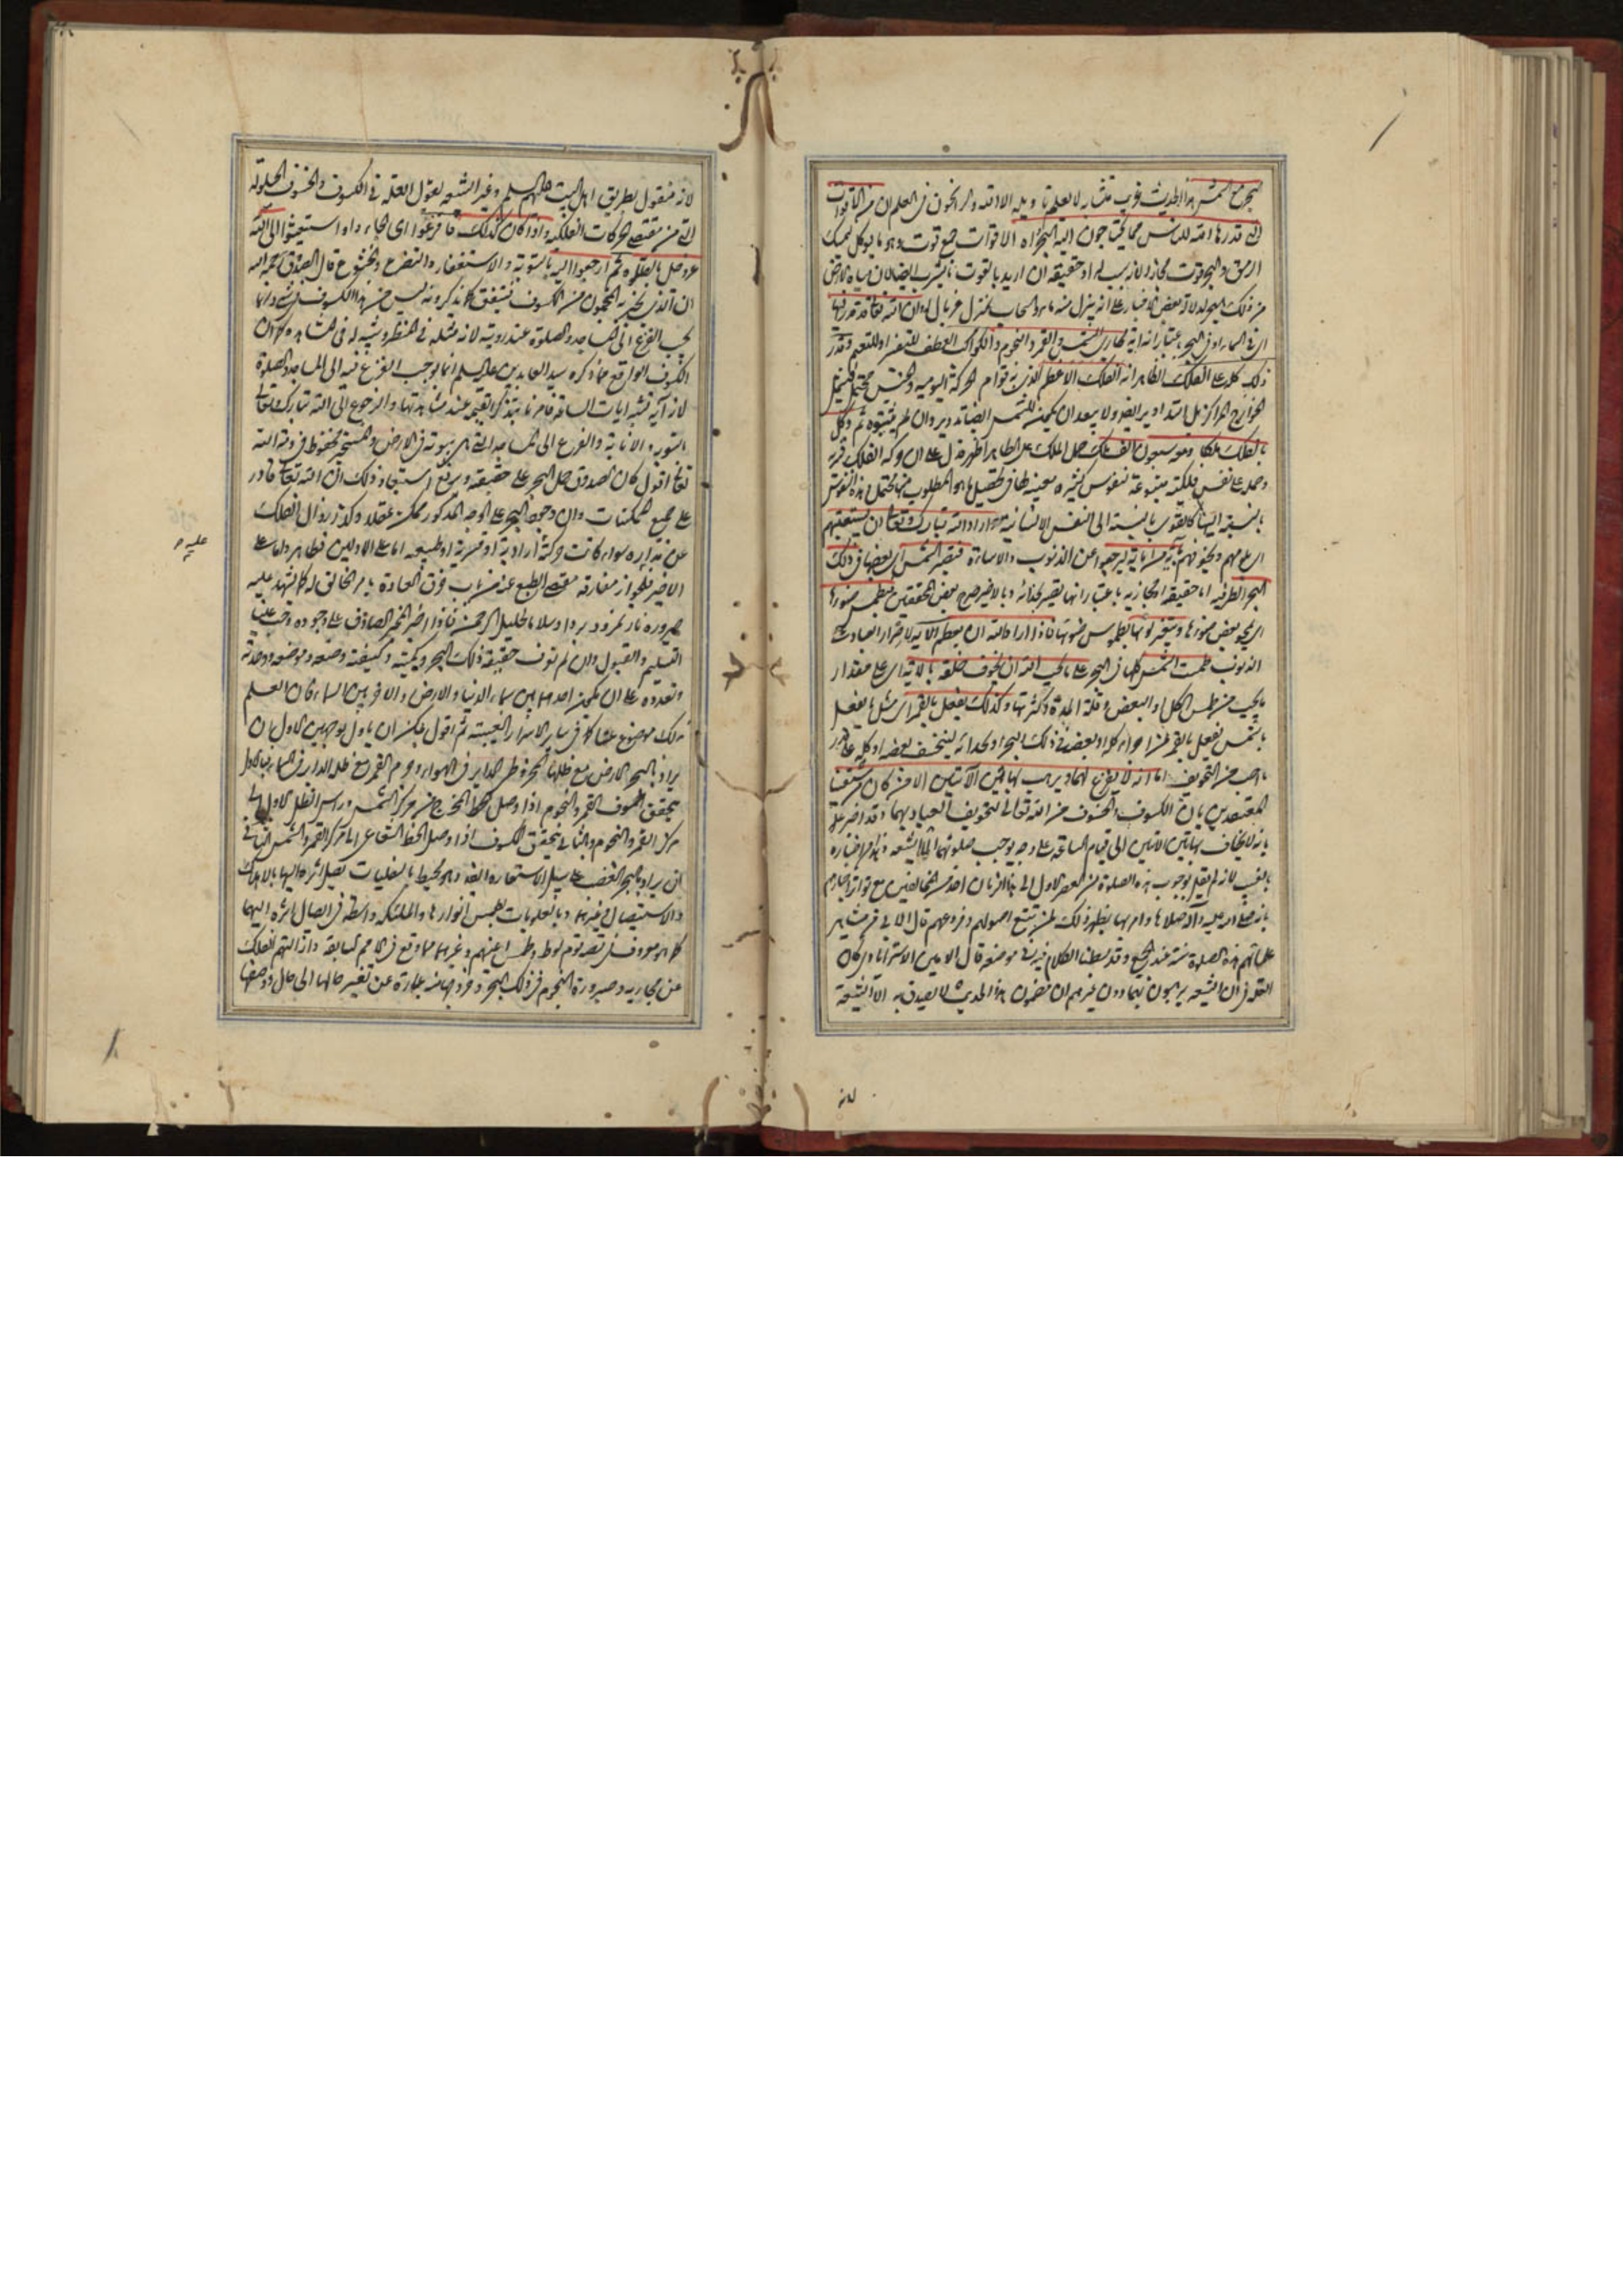 البحر مع الشمس هذا الحديث غريب متشابه لا يعلم تأويله الا الله والراسخون في العلم ان من الاقوات
التي قدرها الله للناس مما يحتاجون اليه البحر اه الاقوات جمع قوت وهو ما يوكل ليمسك
الرمق والبحر قوت مجازا لانه سبب له او حقيقة ان اريد بالقوت ما يشرب ايضا لان مياه الارض
من ذلك البحر لدلالة بعض الاخبار على انه ينزل منه ماء والسحاب بمنزلة غربال له وان الله تعالى قد قدر فيها
اي في السماء او في البحر باعتبار انه آية مجاري الشمس والقمر والنجوم والكواكب العطف للتفسير او للتعميم وقدر
ذلك كله على الفلك الظاهر انه الفلك الاعظم الذي به قوام الحركة اليومية والجنس محتمل فيشمل
الخوارج المراكز بل التداوير ايضا ولا يبعد ان يكون للشمس ايضا تدوير وان لم يثبتوه ثم وكل
بالفلك ملكا ومعه سبعون الف ملك حمل الملك على الظاهر اظهر فدل على ان حركة الفلك قسرية
وحمله على نفس فلكية متبوعة لنفوس كثيرة معينة لها في تحصيل ما هو المطلوب منها محتمل وهذه النفوس
بالنسبة اليها كالقوى بالنسبة الى النفس الانسانية اراد الله تبارك وتعالى ان يستعتبهم
اي يلومهم ويخوفهم بآية من آياته ليرجعوا عن الذنوب والاساءة فتصير الشمس اي بعضها في ذلك
البحر الظرفية اما حقيقة او مجازية باعتبار انها تصير بحذائه وبالاخير صرح بعض المحققين فيطمس ضوءها
اي يمحو بعض ضوئها ويتغير لونها بطموس ضوئها فاذا اراد الله ان يعظم الآية لاصرار العباد على
الذنوب طمست الشمس كلها في البحر على ما يحب الله ان يخوف خلقه بالآية اي على مقدار
ما يحب من طمس الكل او البعض وقلة المدة وكثرتها وكذلك يفعل بالقمر اي مثل ما يفعل
بالشمس يفعل بالقمر من اجرائه كله او بعضه في ذلك البحر او بحذائه لينخسف بعضه او كله على قدر
ما احب من التخويف اما انه لا يفزع لهما ولا يرهب بهاتين الآيتين الا من كان من شيعتنا
المعتقدين بان الكسوف والخسوف من الله تعالى لتخويف العباد بهما وقد اخبر
بانه لا يخاف بهاتين الآيتين الى قيام الساعة على وجه يوجب صلوتهما الا الشيعة وهذا من اخباره
بالغيب لانه لم يقل بوجوب هذه الصلوة من العصر الاول الى هذا الزمان احد من المخالفين مع تواتر اخبارهم
بانه صلى الله عليه وآله صلاها وامر بها يظهر ذلك لمن تتبع اصولهم وفروعهم قال الآبي من مشاهير
علمائهم هذه الصلوة سنة عند الجميع وقد بسطنا الكلام فيه في موضعه قال الامين الاسترابادي كان
القصد ان الشيعة يرهبون بهما دون غيرهم ان مضمون هذا الحديث لا يصدق به الا الشيعة
لانه
لانه منقول بطريق اهل البيت عليهم السلم وغير الشيعة يقول العلة في الكسوف والخسوف الحيلولة
التي من مقتضى الحركات الفلكية واذا كان كذلك فافزعوا اي الجاءوا او استغيثوا الى الله
عز وجل بالصلوة ثم ارجعوا اليه بالتوبة والاستغفار والتضرع والخشوع قال الصدوق رحمه الله
ان الذي يخبر به المنجمون من الكسوف فيتفق كما يذكرونه ليس من هذا الكسوف في شيء وانما
يجب الفزع الى المساجد والصلوة عند رويته لانه مثله في المنظر وشبيه له في المشاهدة كما ان
الكسوف الواقع مما ذكره سيد العابدين عليه السلم انما يوجب الفزع فيه الى المساجد والصلوة
لانه آية تشبه آيات الساعة فامرنا بتذكر القيمة عند مشاهدتها والرجوع الى الله تبارك وتعالى
بالتوبة والانابة والفزع الى المساجد التي هي بيوته في الارض والمستجير بها محفوظ في ذمة الله
تعالى اقول كان الصدوق حمل البحر على حقيقته ويرفع استبعاد ذلك ان الله تعالى قادر
على جميع الممكنات وان وجود البحر على الوجه المذكور ممكن عقلا وكذا زوال الفلك
عن مداره سواء كانت حركة ارادية او قسرية او طبيعية اما على الاولين فظاهر واما على
عليه م
الاخير فلجواز مفارقة مقتضى الطبع عنه من باب خرق العادة بامر الخالق له كما يشهد عليه
صيرورة نار نمرود بردا وسلاما لخليل الرحمن فاذا اخبر المخبر الصادق على وجوده وجب علينا
التسليم والقبول وان لم نعرف حقيقة ذلك البحر وكميته وكيفيته وصنعه وموضعه ووحدته
وتعدده على ان يكون احدهما بين سماء الدنيا والارض والآخر بين السماء فان العلم
بذلك موضوع عنا كما في ساير الاسرار الغيبية ثم اقول يمكن ان يأول بوجهين الاول ان
يراد بالبحر الارض مع ظلها كمخروط الداير في الهواء وجرم القمر مع ظله الداير في السماء فبالاول
يتحقق خسوف القمر والنجوم اذا وصل الخط الخارج من مركز الشمس وراس الظل الاول الى
مركز القمر والنجوم والثاني يتحقق الكسوف اذا وصل الخط الشعاعي الى مركز القمر والشمس الثاني
ان يراد بالبحر الغضب على سبيل الاستعارة وهو محيط بالسفليات يصل اثره اليها بالاهلاك
والاستيصال وغيرهما وبالعلويات بطمس انوارها والملئكة واسطة في ايصال اثره اليهما
كما هو معروف في قصة قوم لوط وطمس اعينهم وغيرهما مما وقع في الامم السابقة وازالتهم الفلك
عن مجاريه وصيرورة النجوم في ذلك البحر وخروجها منه عبارة عن تغير حالها الى حال